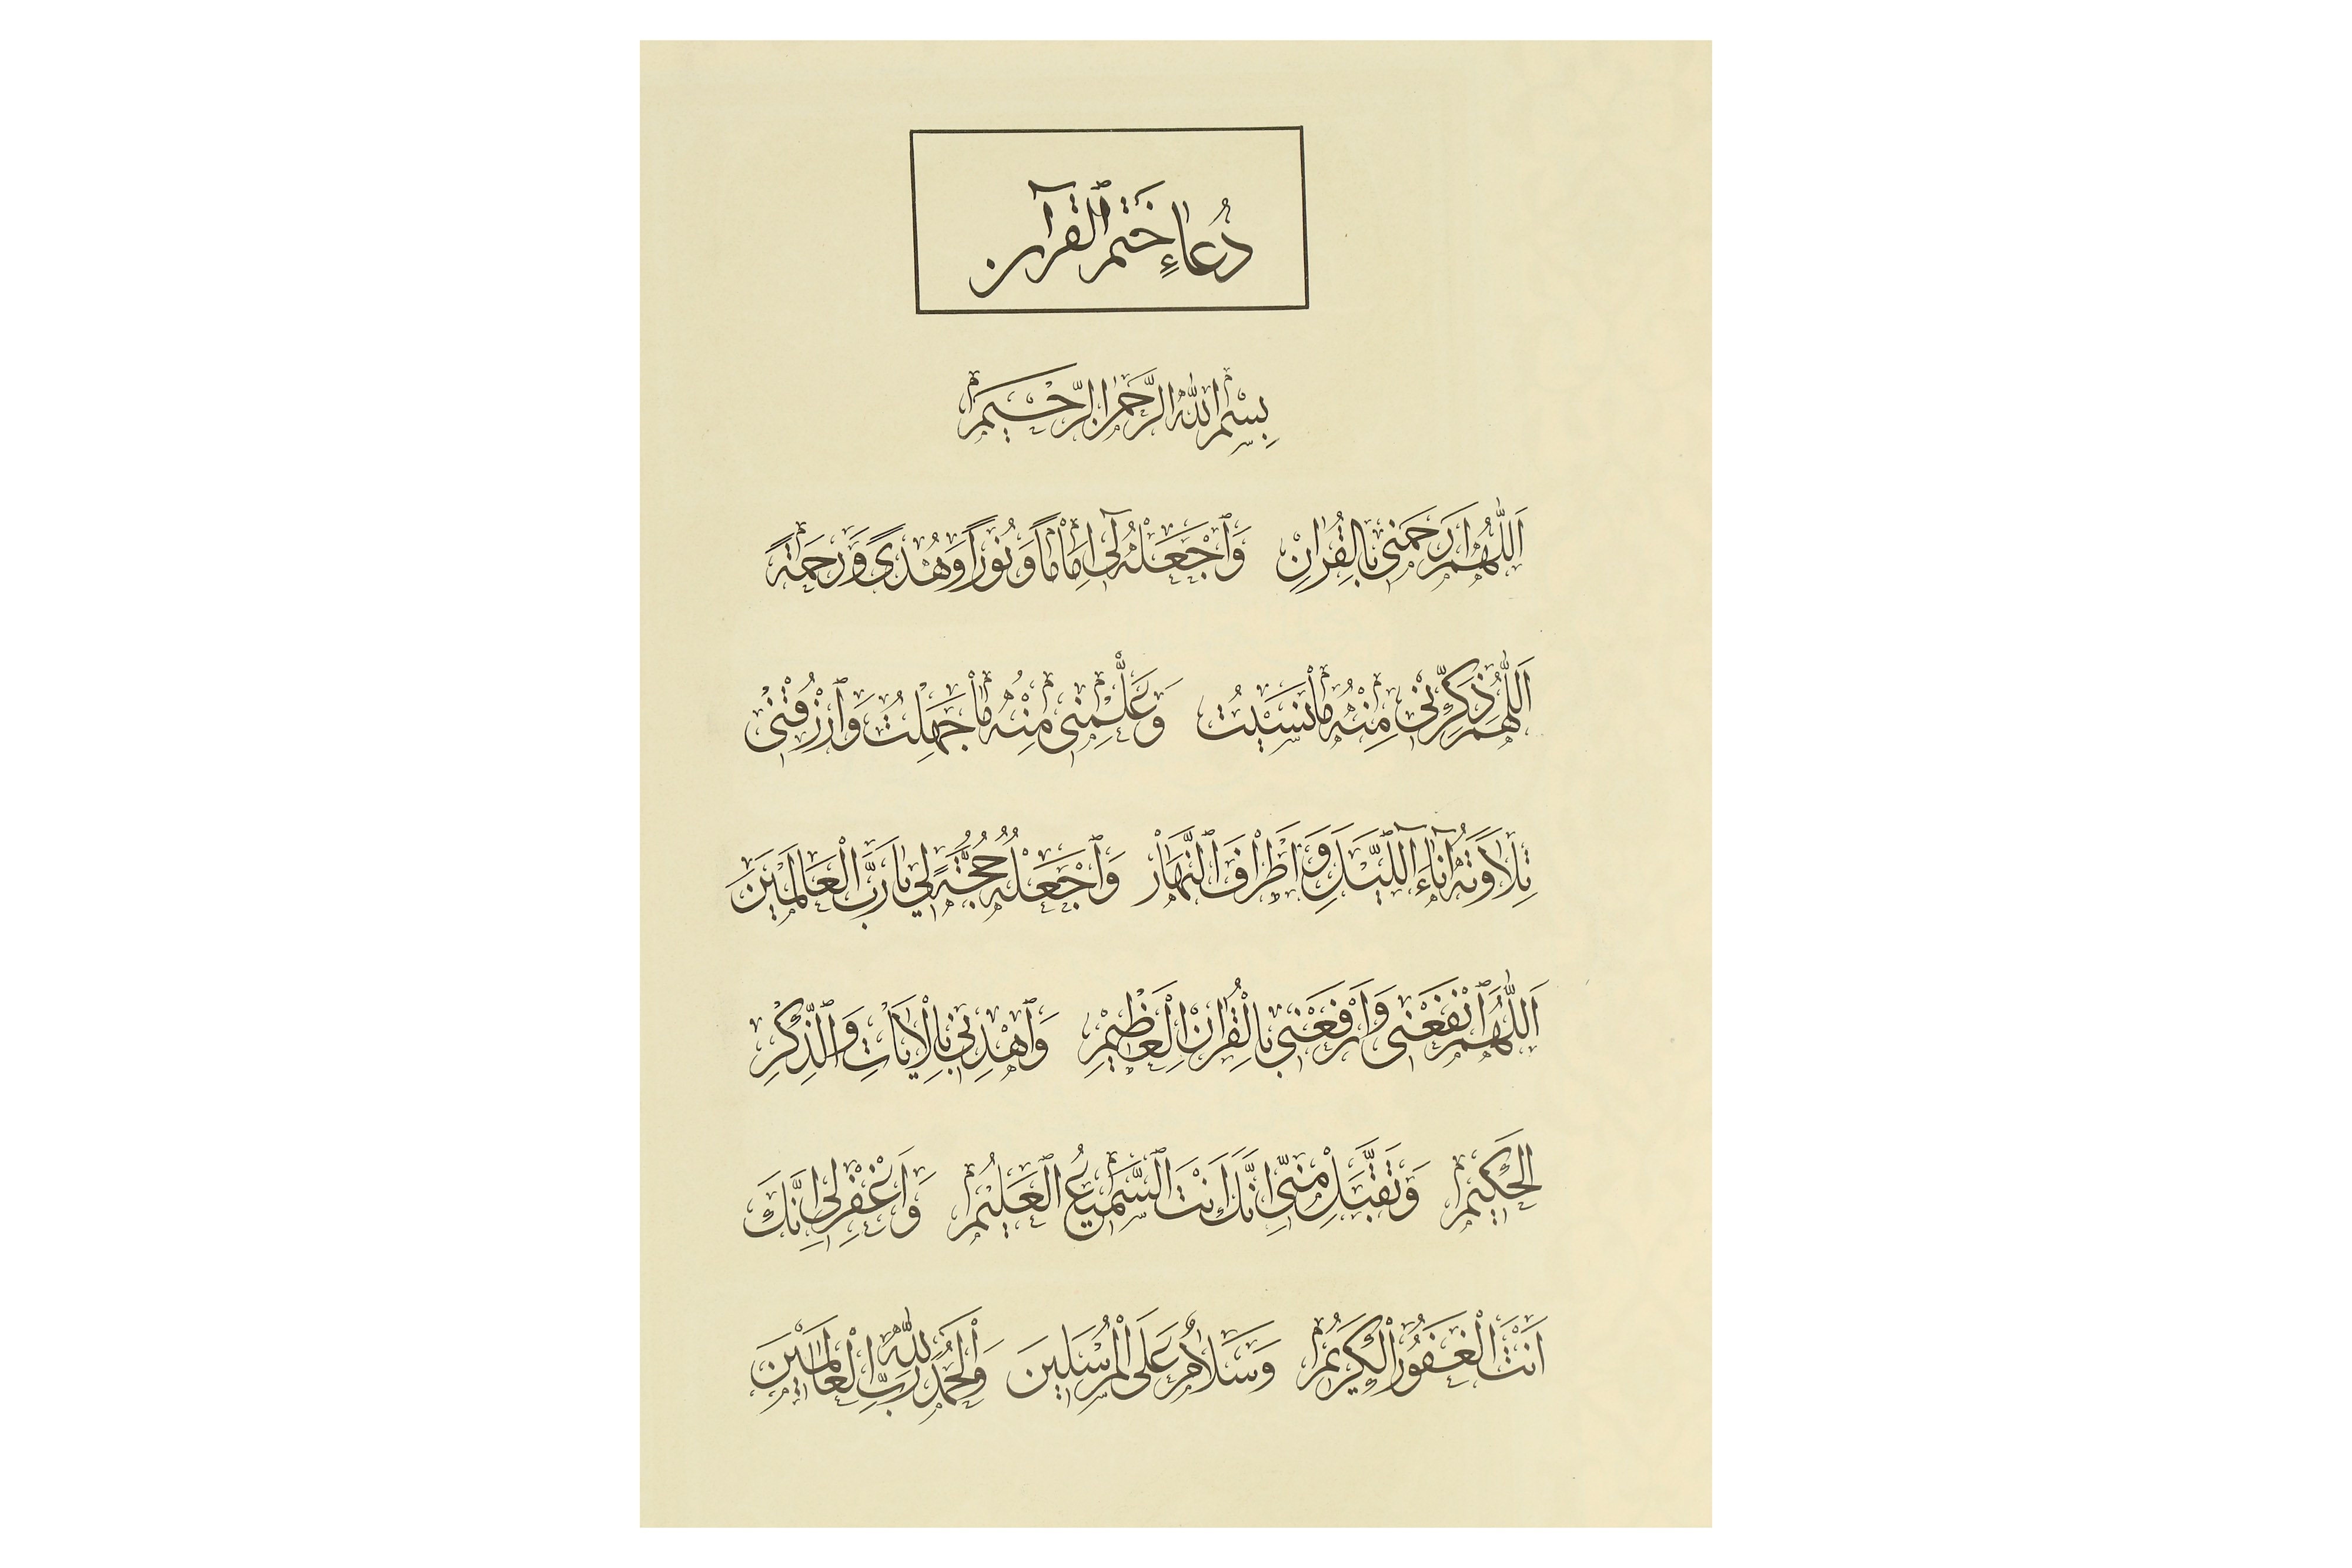 دُعَاءِ خَتْمِ ٱلْقُرْآنِ
بِسْمِ اللّٰهِ الرَّحْمٰنِ الرَّحِيمِ
اَللّٰهُمَّ ارْحَمْنِي بِالْقُرْاٰنِ وَٱجْعَلْهُ لِي اِمَامًا وَنُورًا وَهُدًى وَرَحْمَةً
اَللّٰهُمَّ ذَكِّرْنِي مِنْهُ مَا نَسِيتُ وَعَلِّمْنِي مِنْهُ مَا جَهِلْتُ وَٱرْزُقْنِي
تِلَاوَتَهُ اٰنَاءَ ٱللَّيْلِ وَاَطْرَافَ ٱلنَّهَارِ وَٱجْعَلْهُ حُجَّةً لِي يَا رَبَّ الْعَالَمِينَ
اَللّٰهُمَّ ٱنْفَعْنِي وَارْفَعْنِي بِالْقُرْاٰنِ الْعَظِيمِ وَٱهْدِنِي بِالْاٰيَاتِ وَٱلذِّكْرِ
الْحَكِيمِ وَتَقَبَّلْ مِنِّي اِنَّكَ اَنْتَ ٱلسَّمِيعُ ٱلْعَلِيمُ وَاغْفِرْ لِي اِنَّكَ
اَنْتَ الْغَفُورُ الْكَرِيمُ وَسَلَامٌ عَلَى الْمُرْسَلِينَ وَالْحَمْدُ لِلّٰهِ رَبِّ الْعَالَمِينَ